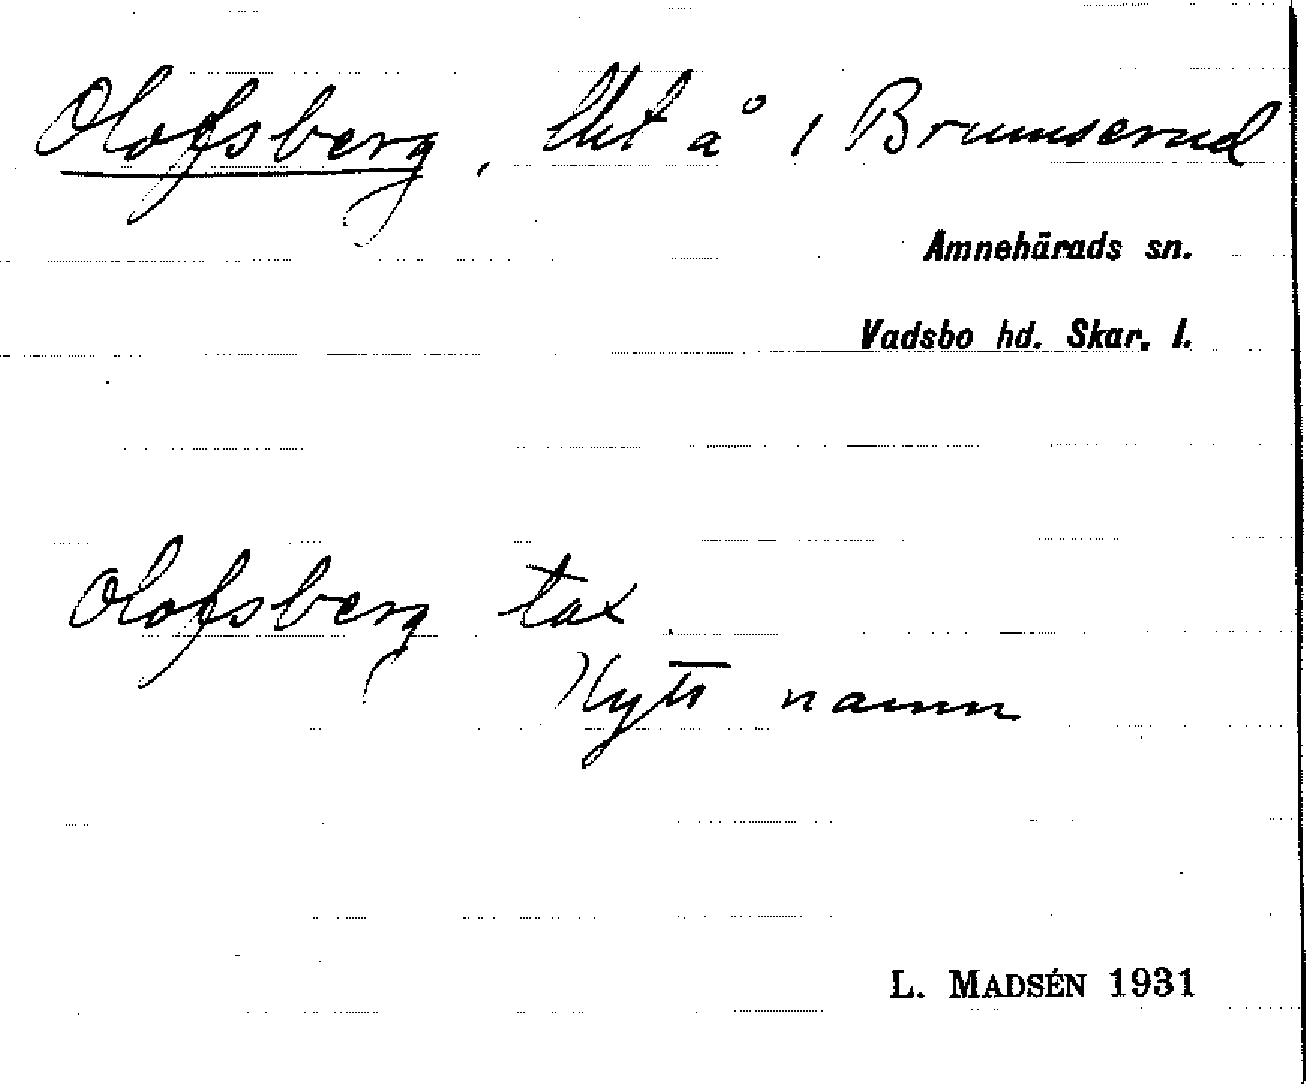 Olofsberg, lht å 1 Brumserud
Amnehärads sn.
Vadsbo hd. Skar. l.
Olofsberg tax.
Nytt namn
L. MADSÉN 1931